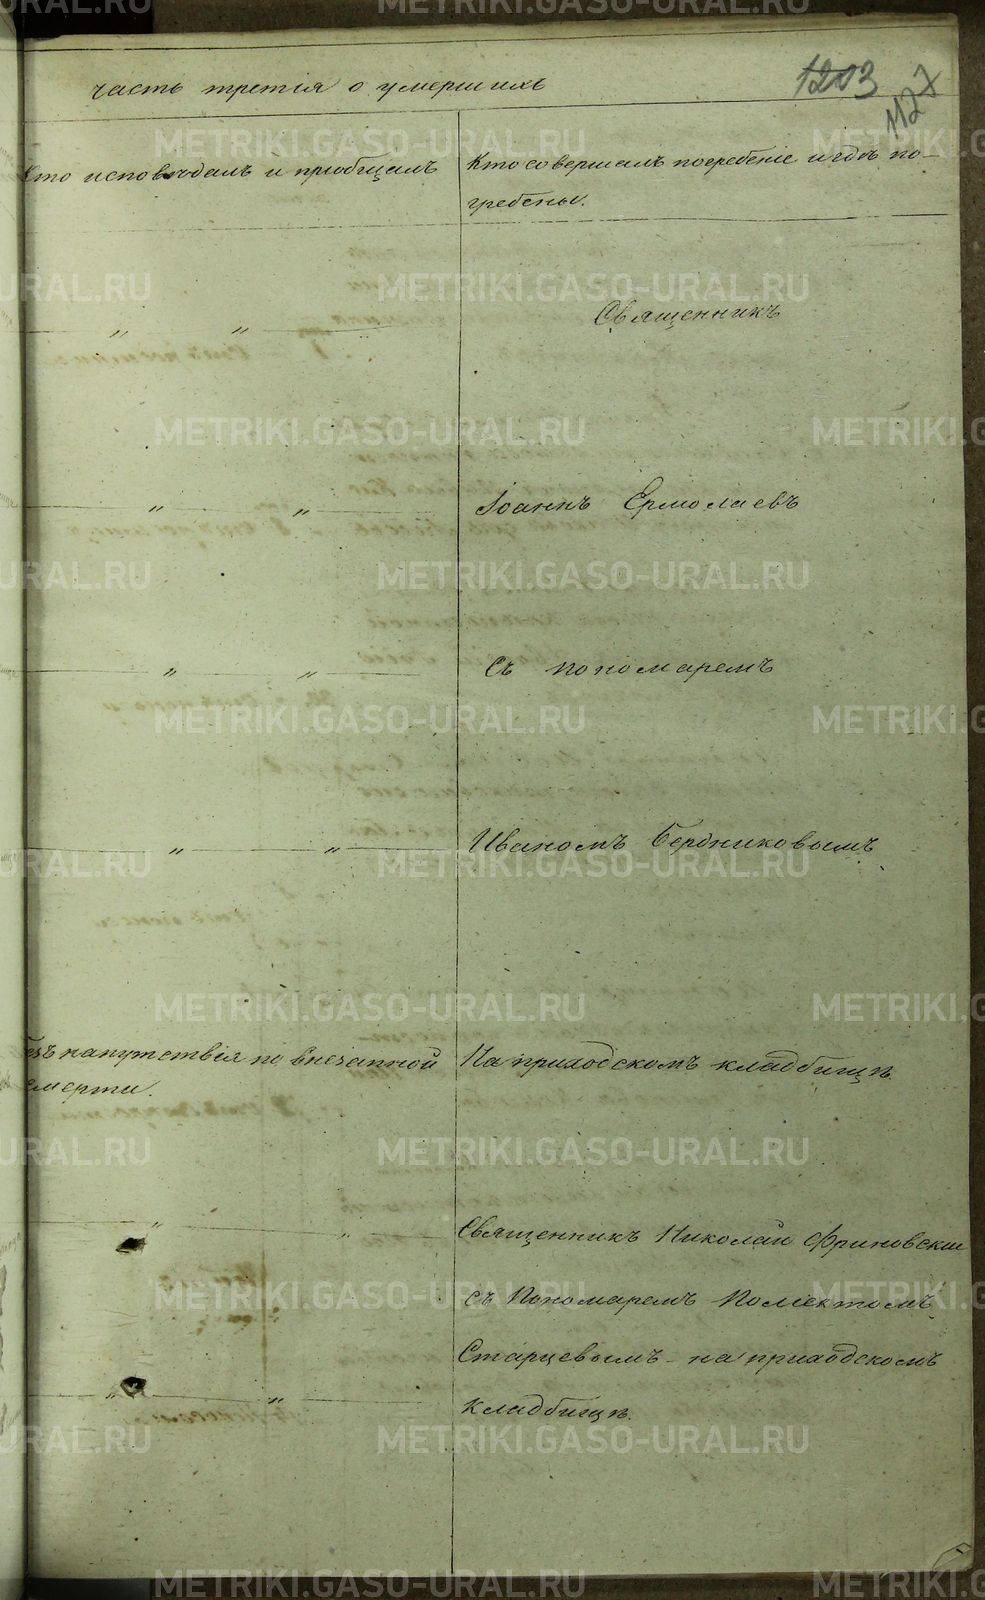 часть третія о умершихъ
1203
1127
Кто исповѣдалъ и пріобщалъ
Кто совершалъ погребеніе и гдѣ по-
гребены.
Священникъ
" "
Іоаннъ Ермолаевъ
" "
съ пономаремъ
" "
Иваномъ Бердниковымъ
" "
безъ напутствія по внезапной
смерти.
На приходскомъ кладбищѣ.
Священникъ Николай
" "
съ Пономаремъ Поліектомъ
Старцевымъ на приходскомъ
кладбищѣ.
" "
METRIKI.GASO-URAL.RU